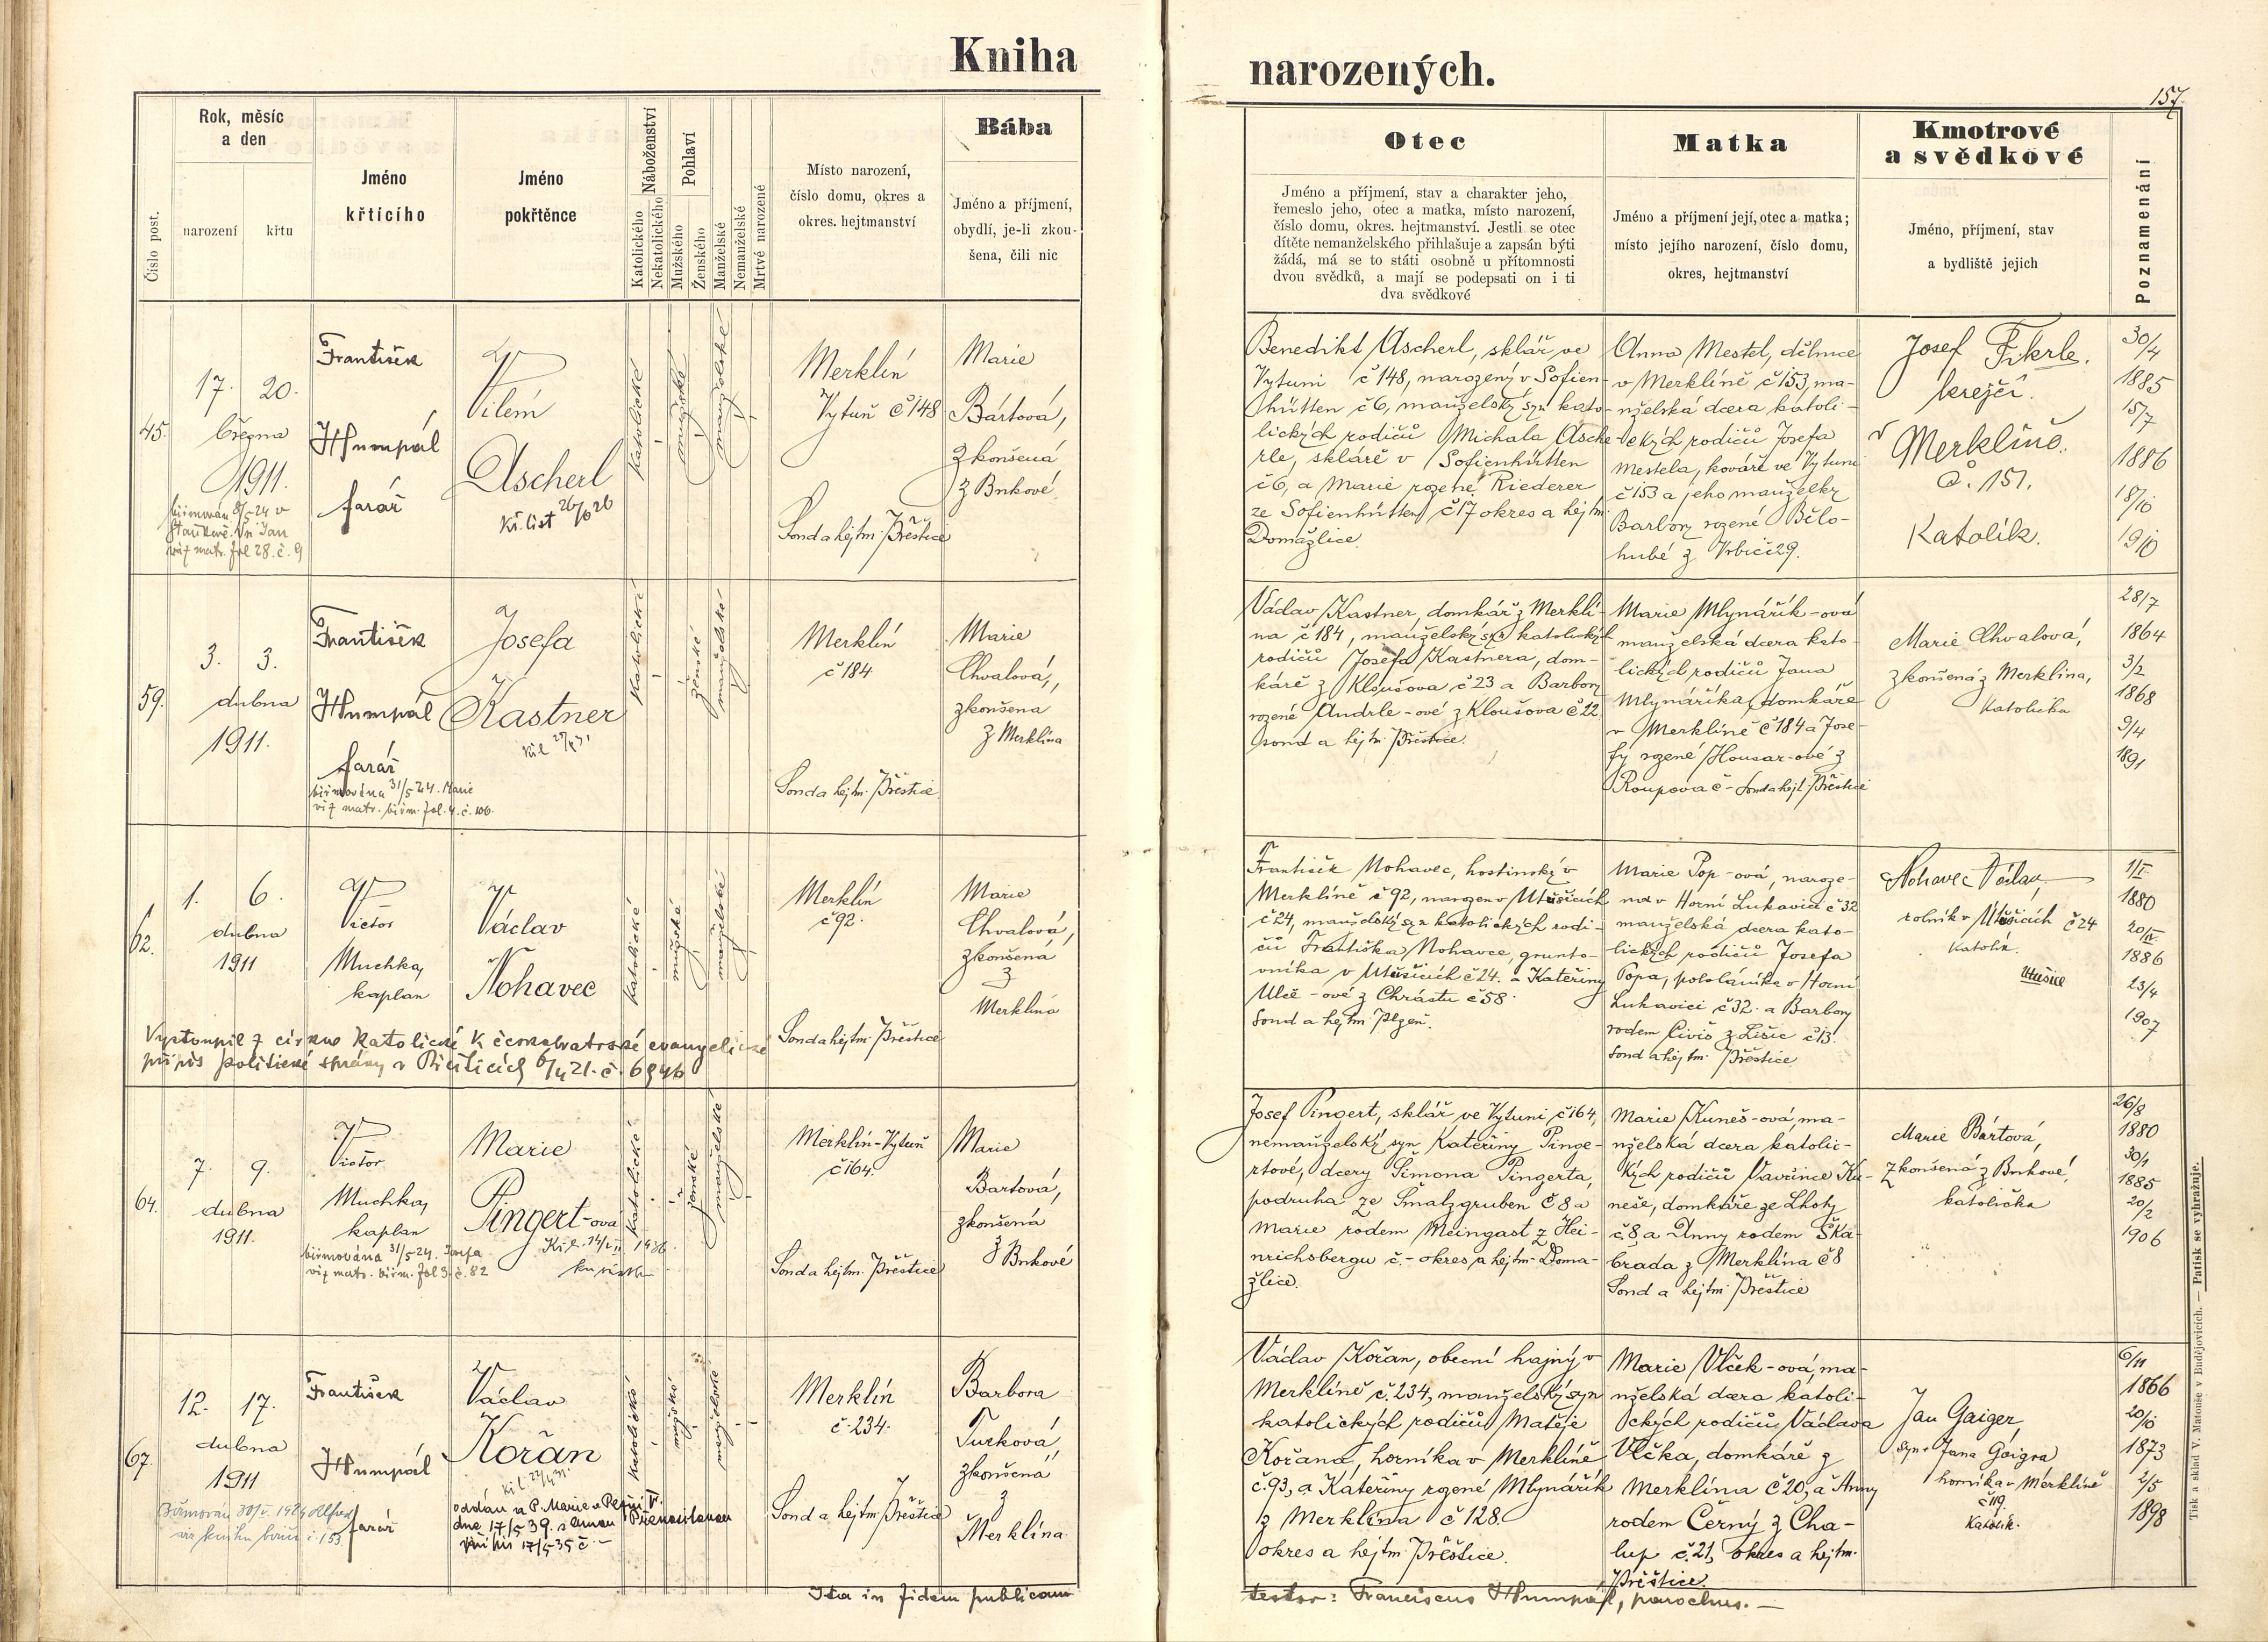 Kniha
narozených.
157.
Číslo post.
Rok, měsíc
a den
narození
křtu
Jméno
křtícího
Jméno
pokřtěnce
Náboženství
Katolického
Nekatolického
Pohlaví
Mužského
Ženského
Manželské
Nemanželské
Mrtvě narozené
Místo narození,
číslo domu, okres a
okres. hejtmanství
Bába
Jméno a příjmení,
obydlí, je-li zkou-
šena, čili nic
Otec
Jméno a příjmení, stav a charakter jeho,
řemeslo jeho, otec a matka, místo narození,
číslo domu, okres. hejtmanství. Jestli se otec
dítěte nemanželského přihlašuje a zapsán býti
žádá, má se to státi osobně u přítomnosti
dvou svědků, a mají se podepsati on i ti
dva svědkové
Matka
Jméno a příjmení její, otec a matka;
místo jejího narození, číslo domu,
okres, hejtmanství
Kmotrové
a svědkové
Jméno, příjmení, stav
a bydliště jejich
Poznamenání
45.
17. 20.
března
1911.
František
Humpál
farář
Vilém
Ascherl
Kř. list
katolické
mužské
manželské
Merklín
Vytuň č 148
Soud a hejtm. Přeštice
Marie
Bártová,
zkoušená
z Bukové
Benedikt Ascherl, sklář ve
Vytuni č 148, narozený v Sofien-
hütten č 6, manželský syn kato-
lických rodičů Michala Asche-
rle, skláře v Sofienhütten
č 6, a Marie rozené Riederer
ze Sofienhütten č 17 okres a hejtm.
Domažlice.
Anna Mestel, dělnice
v Merklíně č 153, ma-
nželská dcera katoli-
ckých rodičů Josefa
Mestela, kováře ve Vytuni
č 153 a jeho manželky
Barbory rozené Bělo-
hubé z Vrbičí 29.
Josef Fikrle.
krejčí.
v Merklíně.
č. 151.
Katolík.
30/4
1885
15/7
1886
18/10
1910
59.
3. 3.
dubna
1911.
František
Humpál
farář
biřmována 31/5 24. Marie
viz matr. biřm. fol. 4. č. 106.
Josefa
Kastner
katolické
ženské
manželské
Merklín
č 184
Soud a hejtm. Přeštice
Marie
Chvalová,
zkoušena
z Merklína
Václav Kastner, domkář z Merklí-
na č 184, manželský syn katolických
rodičů Josefa Kastnera, dom-
káře z Kloušova č 23 a Barbory
rozené Andrle-ové z Kloušova č 22
soud a hejtm. Přeštice.
Marie Mlynářík-ová
manželská dcera kato-
lických rodičů Jana
Mlynáříka, domkáře
v Merklíně č 184 a Jose-
fy rozené Housar-ové z
Roupova č - soud a hejt. Přeštice
Marie Chvalová,
zkoušená z Merklína,
Katolička
28/7
1864
3/2
1868
9/4
1891
62.
1. 6.
dubna
1911
Victor
Muchka,
kaplan
Václav
Nohavec
katolické
mužské
manželské
Merklín
č 92.
Soud a hejtm. Přeštice
Marie
Chvalová,
zkoušená
z
Merklína
Vystoupil z církve katolické k českobratrské evangelické
přípis politické správy v Přešticích 6/4 21. č. 6946
František Nohavec, hostinský v
Merklíně č 92, narozen v Utušicích
č 24, manželský syn katolických rodi-
čů Františka Nohavce, grunto-
vníka v Utušicích č 24. a Kateřiny
Ulč-ové z Chrástu č 58.
Soud a hejtm. Plzeň.
Marie Pop-ová, naroze-
na v Horní Lukavici č 32
manželská dcera kato-
lických rodičů Josefa
Popa, pololáníka v Horní
Lukavici č 32. a Barbory
rodem Civiš z Lišic č 13.
Soud a hejtm. Přeštice
Nohavec Václav,
rolník v Utušicích č 24
Katolík.
Utušice
1/I
1880
20/IV
1886
23/4
1907
64.
7. 9.
dubna
1911.
Victor
Muchka,
kaplan
biřmována 31/5 24. Josefa
viz matr. biřm. fol 3. č. 82
Marie
Pingert-ova
katolické
ženské
manželské
Merklín-Vytuň
č 164.
Soud a hejtm. Přeštice
Marie
Bartová,
zkoušená
z Bukové
Josef Pingert, sklář ve Vytuni č 164,
nemanželský syn Kateřiny Pinge-
rtové, dcery Šimona Pingerta,
podruha ze Šmalzgruben č 8 a
Marie rodem Meingast z Hei-
nrichsbergu č. - okres a hejtm. Doma-
žlice.
Marie Kuneš-ová, ma-
nželská dcera katolic-
kých rodičů Vavřince Ku-
neše, domkáře ze Lhoty
č 8, a Anny rodem Ška-
brada z Merklína č 8
Soud a hejtm. Přeštice
Marie Bártová,
zkoušená z Bukové,
katolička
26/8
1880
30/1
1885
20/2
1906
67.
12. 17.
dubna
1911
František
Humpál
farář
Václav
Kořan
oddán u P. Marie v Plzni
dne 17/5 39.
katolické
mužské
manželské
Merklín
č. 234.
Soud a hejtm. Přeštice
Barbora
Turková,
zkoušená
z
Merklína.
Václav Kořan, obecní hajný v
Merklíně č. 234, manželský syn
katolických rodičů Matěje
Kořana, horníka v Merklíně
č. 93, a Kateřiny rozené Mlynářík
z Merklína č 128.
okres a hejtm. Přeštice.
Marie Vlček-ová, ma-
nželská dcera katoli-
ckých rodičů Václava
Vlčka, domkáře z
Merklína č 20, a Anny
rodem Černý z Cha-
lup č. 21, okres a hejtm.
Přeštice.
Jan Gaiger,
syn Jana Gaigra
horníka v Merklíně
č 119.
Katolík.
6/11
1866
20/10
1873
2/5
1898
Ita in fidem publicam
testor: Franciscus Humpál, parochus. —
Tisk a sklad V. Matouše v Budějovicích. — Patisk se vyhražuje.